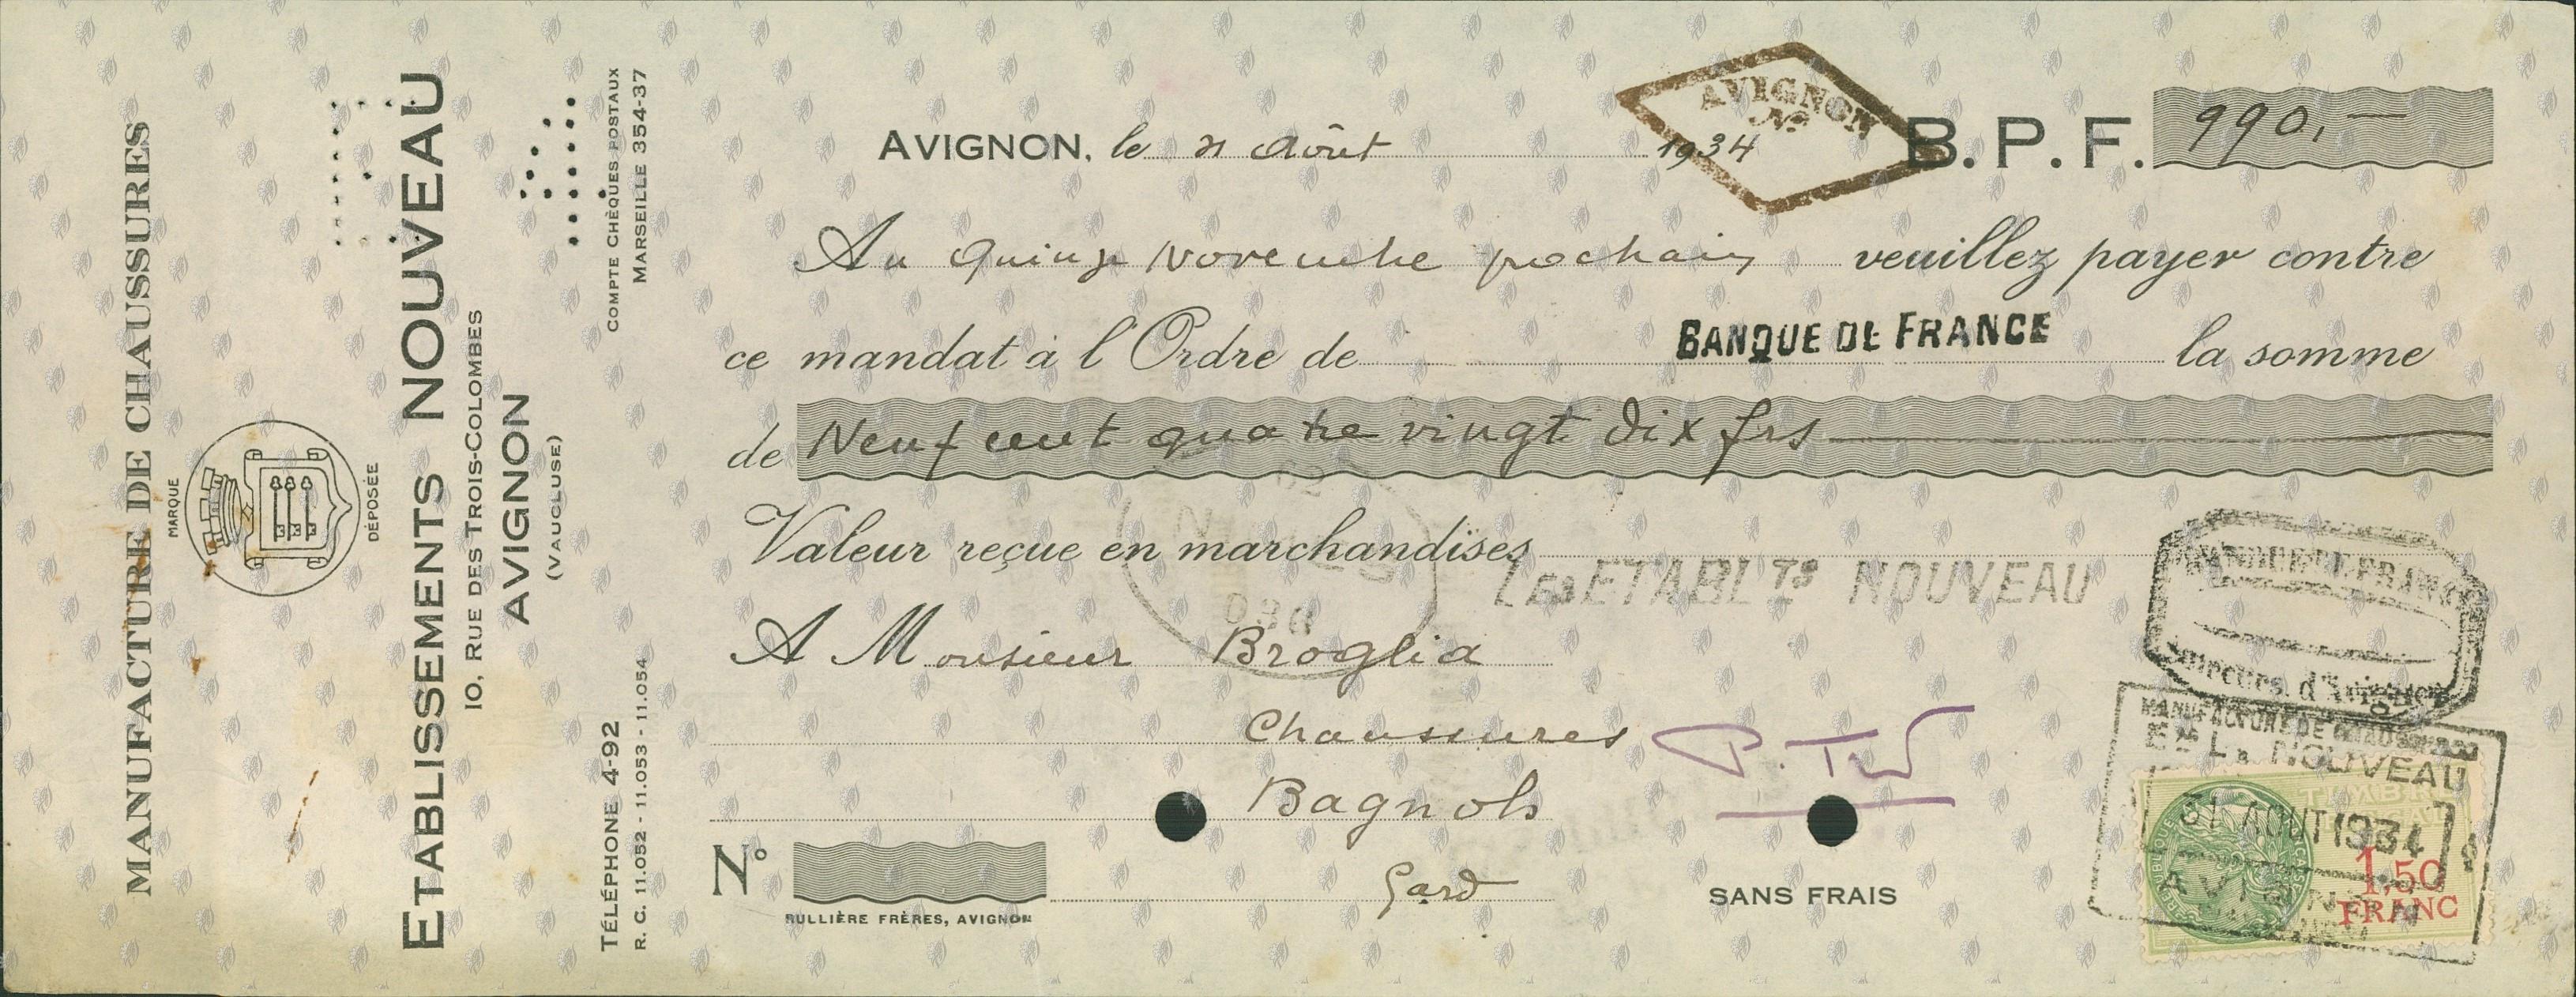 MANUFACTURE DE CHAUSSURES
MARQUE
DÉPOSÉE
ETABLISSEMENTS NOUVEAU
10, RUE DES TROIS-COLOMBES
AVIGNON
(VAUCLUSE)
COMPTE CHÈQUES POSTAUX
MARSEILLE 354-37
TÉLÉPHONE 4-92
R. C. 11.052 - 11.053 - 11.054
AVIGNON
No
AVIGNON, le 31 Août 1934 B.P.F. 990,—
Au quinze Novembre prochain veuillez payer contre
ce mandat à l'Ordre de BANQUE DE FRANCE la somme
de Neuf cent quatre vingt dix frs
Valeur reçue en marchandises
LES ETABLTS NOUVEAU
A Monsieur Broglia
Chaussures
Bagnols
Gard
No
RULLIÈRE FRÈRES, AVIGNON
SANS FRAIS
BANQUE DE FRANCE
d'Avignon
MANUFACTURE DE CHAUSSURES
NOUVEAU
31 AOUT 1934
AVIGNON
1,50
FRANC